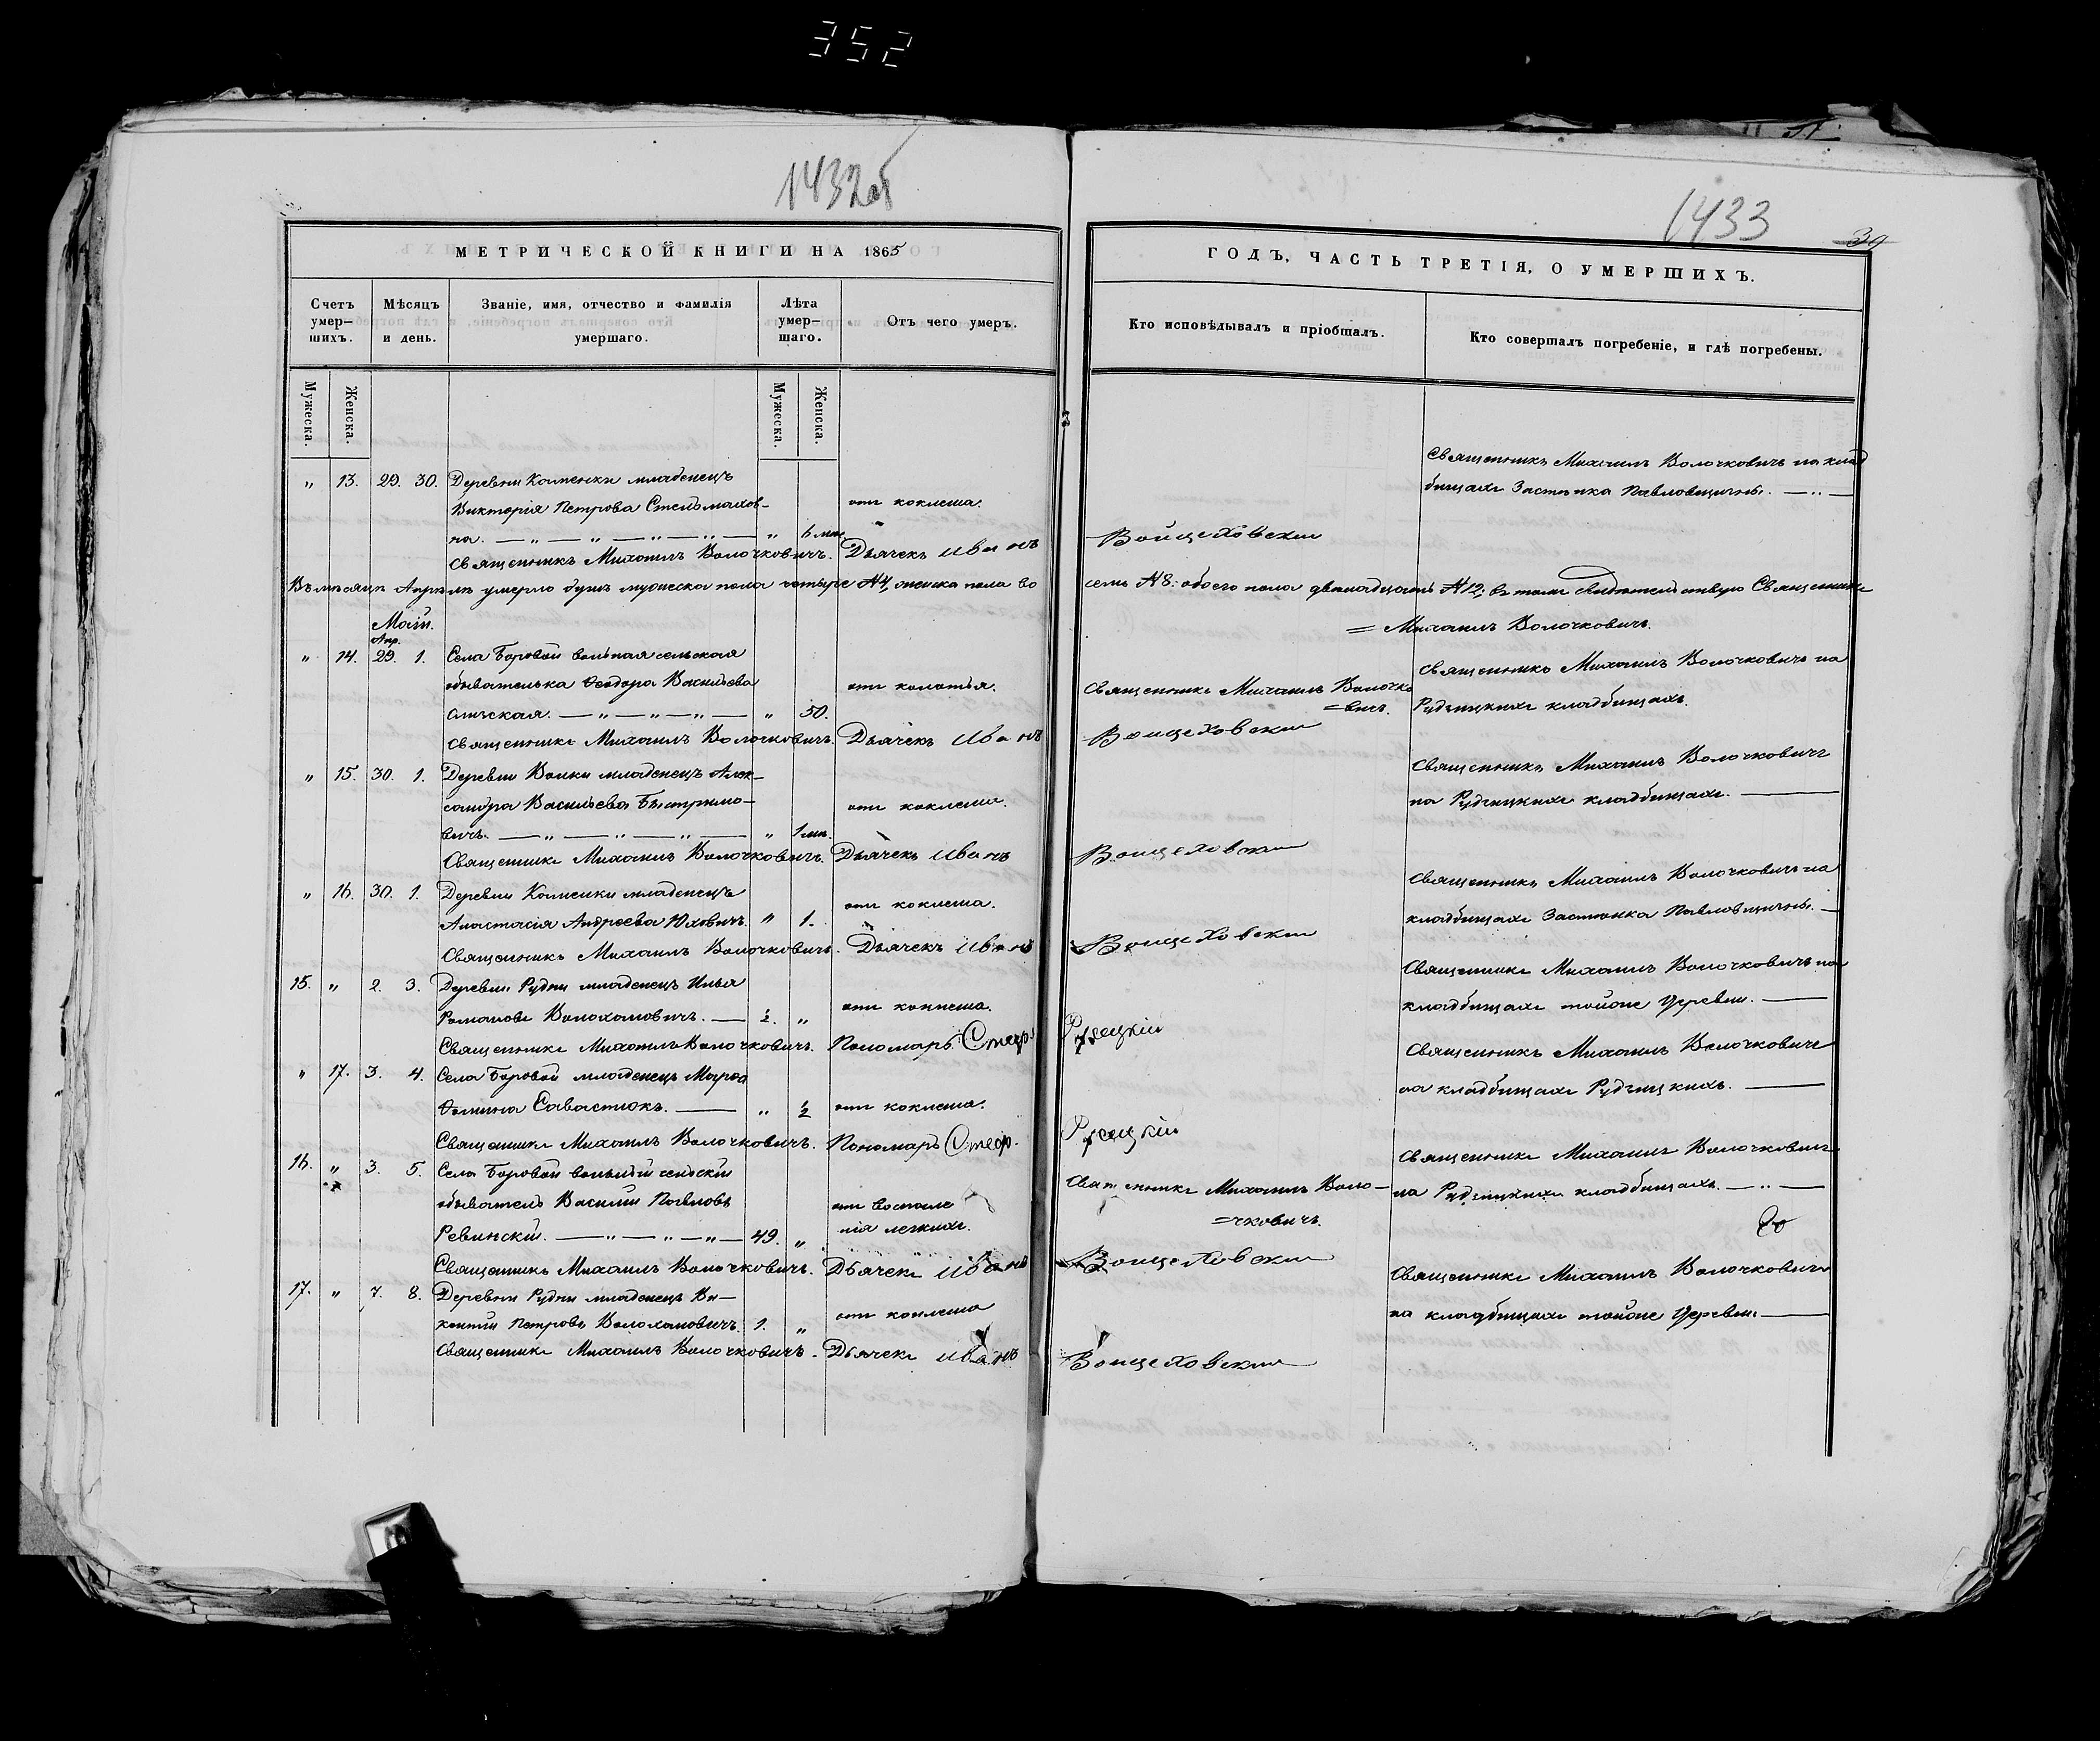 352
1432об
1433
39
МЕТРИЧЕСКОЙ КНИГИ НА 1865
ГОДЪ, ЧАСТЬ ТРЕТІЯ, О УМЕРШИХЪ.
Счетъ умер-шихъ.
Мѣсяцъ и день.
Званіе, имя, отчество и фамилія умершаго.
Лѣта умер-шаго.
Отъ чего умеръ.
Кто исповѣдывалъ и пріобщалъ.
Кто совершалъ погребеніе, и гдѣ погребены.
Мужеска. Женска.
Мужеска. Женска.
" 13. 29. 30. Деревни Каменки младенецъ
Викторія Петрова Стельмахов-
на. — " — " — " — " — " 6 мц. отъ коклюша.
Священникъ Михаилъ Волочковичъ на клад
бищахъ Застѣнка Павловщины. — " —
Священникъ Михаилъ Волочковичъ. Дьячекъ Иванъ Войцеховскій
Въ мѣсяцѣ Апрѣлѣ умерло душъ мужеска пола четыре №4, женска пола во
семь №8: обоего пола двѣнадцать №12; въ томъ свидѣтельствую Священникъ
= Михаилъ Волочковичъ.
Маій.
Апр.
" 14. 29. 1. Села Боровой вольная сельская
обывателька Ѳеодора Васильева
— " — " — " — " 50. отъ колотья.
Священникъ Михаилъ Волочко
=вичъ.
Священникъ Михаилъ Волочковичъ на
Рудницкихъ кладбищахъ.
Священникъ Михаилъ Волочковичъ. Дьячекъ Иванъ Войцеховскій
" 15. 30. 1. Деревни Волки младенецъ Алек-
сандра Васильева Быстримо-
вичъ. — " — " — " — " 1 мц. отъ коклюша.
Священникъ Михаилъ Волочковичъ
на Рудницкихъ кладбищахъ. —
Священникъ Михаилъ Волочковичъ. Дьячекъ Иванъ Войцеховскій
" 16. 30. 1. Деревни Каменки младенецъ
Анастасія Андреева Юховичъ. " 1. отъ коклюша.
Священникъ Михаилъ Волочковичъ на
кладбищахъ Застѣнка Павловщины. —
Священникъ Михаилъ Волочковичъ. Дьячекъ Иванъ Войцеховскій
15. " 2. 3. Деревни Рудни младенецъ Илья
Романовъ Волохановичъ. — ½. " отъ коклюша.
Священникъ Михаилъ Волочковичъ на
кладбищахъ тойже деревни. —
Священникъ Михаилъ Волочковичъ. Пономарь Стеф.
" 17. 3. 4. Села Боровой младенецъ Марѳа
Ѳомина Савастюкъ. — " ½ отъ коклюша.
Священникъ Михаилъ Волочковичъ
на кладбищахъ Рудницкихъ. —
Священникъ Михаилъ Волочковичъ. Пономарь Стеф.
16. " 3. 5. Села Боровой вольный сельскій
обыватель Василій Павловъ
Ревинскій. — " — " — " — 49. " отъ воспале
нія легкихъ.
Священникъ Михаилъ Воло-
=чковичъ.
Священникъ Михаилъ Волочковичъ
на Рудницкихъ кладбищахъ. — " —
Священникъ Михаилъ Волочковичъ. Дьячекъ Иванъ Войцеховскій
17. " 7. 8. Деревни Рудни младенецъ Ви-
кентій Петровъ Волохановичъ. 1. " отъ коклюша
Священникъ Михаилъ Волочковичъ
на кладбищахъ тойже деревни —
Священникъ Михаилъ Волочковичъ. Дьячекъ Иванъ Войцеховскій